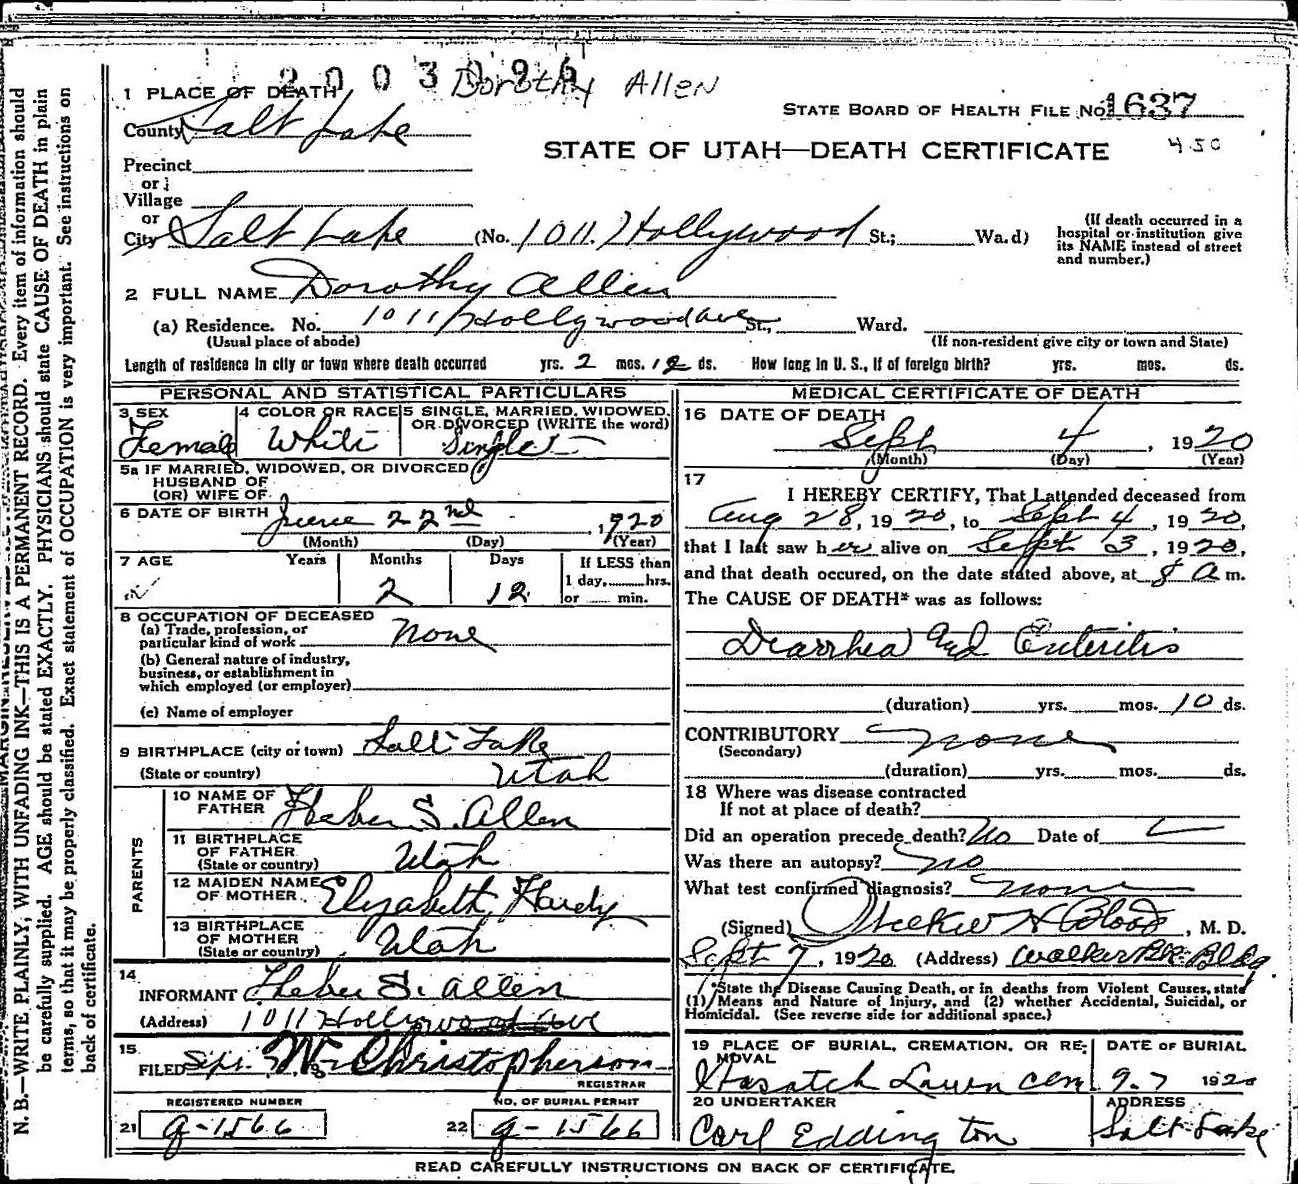 2003096 Dorothy Allen
1 PLACE OF DEATH
STATE BOARD OF HEALTH FILE No. 1637
County Salt Lake
STATE OF UTAH—DEATH CERTIFICATE 4.50
Precinct
or
Village
or
City Salt Lake (No. 1011 Hollywood St.; Wa.d)
(If death occurred in a hospital or institution give its NAME instead of street and number.)
2 FULL NAME Dorothy Allen
(a) Residence. No. 1011 Hollywood Ave St., Ward.
(Usual place of abode) (If non-resident give city or town and State)
Length of residence in city or town where death occurred yrs. 2 mos. 12 ds. How long in U. S., if of foreign birth? yrs. mos. ds.
PERSONAL AND STATISTICAL PARTICULARS
3 SEX Female
4 COLOR OR RACE White
5 SINGLE, MARRIED, WIDOWED, OR DIVORCED (WRITE the word) Single
5a IF MARRIED, WIDOWED, OR DIVORCED
HUSBAND OF
(OR) WIFE OF
6 DATE OF BIRTH June 22nd, 1920
(Month) (Day) (Year)
7 AGE Years Months Days If LESS than
1 day, hrs.
2 12 or min.
8 OCCUPATION OF DECEASED
(a) Trade, profession, or
particular kind of work none
(b) General nature of industry,
business, or establishment in
which employed (or employer)
(c) Name of employer
9 BIRTHPLACE (city or town) Salt Lake
(State or country) Utah
PARENTS
10 NAME OF
FATHER Heber S. Allen
11 BIRTHPLACE
OF FATHER
(State or country) Utah
12 MAIDEN NAME
OF MOTHER Elizabeth Hardy
13 BIRTHPLACE
OF MOTHER
(State or country) Utah
14
INFORMANT Heber S. Allen
(Address) 1011 Hollywood Ave
15
FILED Sept. W. Christopherson
REGISTRAR
REGISTERED NUMBER NO. OF BURIAL PERMIT
21 9-1566 22 9-1566
MEDICAL CERTIFICATE OF DEATH
16 DATE OF DEATH
Sept 4, 1920
(Month) (Day) (Year)
17
I HEREBY CERTIFY, That I attended deceased from
Aug 28, 1920, to Sept 4, 1920,
that I last saw her alive on Sept 3, 1920,
and that death occured, on the date stated above, at 8 a m.
The CAUSE OF DEATH* was as follows:
Diarrhea and Enteritis
(duration) yrs. mos. 10 ds.
CONTRIBUTORY none
(Secondary)
(duration) yrs. mos. ds.
18 Where was disease contracted
If not at place of death?
Did an operation precede death? No Date of
Was there an autopsy? no
What test confirmed diagnosis? none
(Signed) H Blood, M. D.
Sept 7, 1920 (Address) Walker Bk. Bldg.
*State the Disease Causing Death, or in deaths from Violent Causes, state
(1) Means and Nature of Injury, and (2) whether Accidental, Suicidal, or
Homicidal. (See reverse side for additional space.)
19 PLACE OF BURIAL, CREMATION, OR RE-
MOVAL
Wasatch Lawn Cem
DATE OF BURIAL
9-7 1920
20 UNDERTAKER
Carl Eddington
ADDRESS
Salt Lake
READ CAREFULLY INSTRUCTIONS ON BACK OF CERTIFICATE.
N. B.—WRITE PLAINLY, WITH UNFADING INK—THIS IS A PERMANENT RECORD. Every item of information should
be carefully supplied. AGE should be stated EXACTLY. PHYSICIANS should state CAUSE OF DEATH in plain
terms, so that it may be properly classified. Exact statement of OCCUPATION is very important. See instructions on
back of certificate.